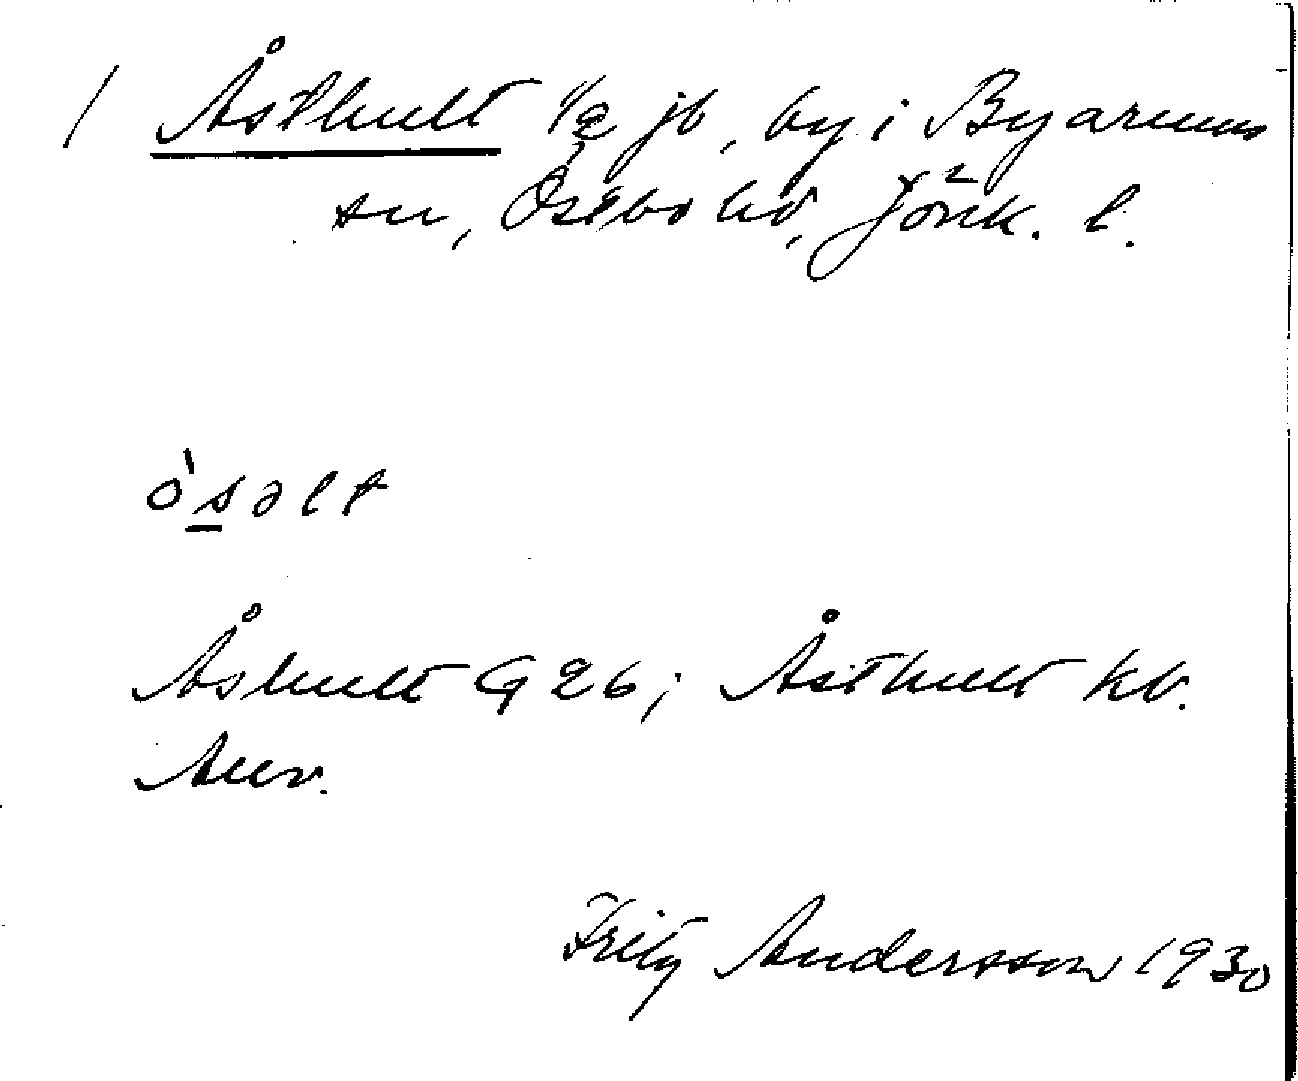 / Åsthult 1/2 jb, by i Byarums
sn, Östbo hd, Jönk. l.
ò̀səlt
Åshult G 26; Åsthult kb.
Anv.
Fritz Andersson 1930